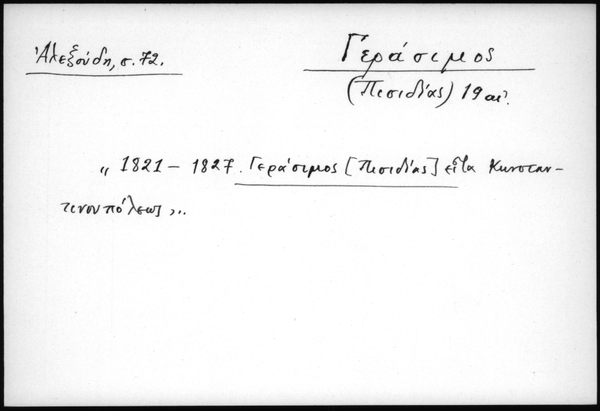 Ἀλεξούδη, σ. 72.
Γεράσιμος
(Πισιδίας) 19 αἰ.
„ 1821 – 1827. Γεράσιμος [Πισιδίας] εἶτα Κωνσταν-
τινουπόλεως „..